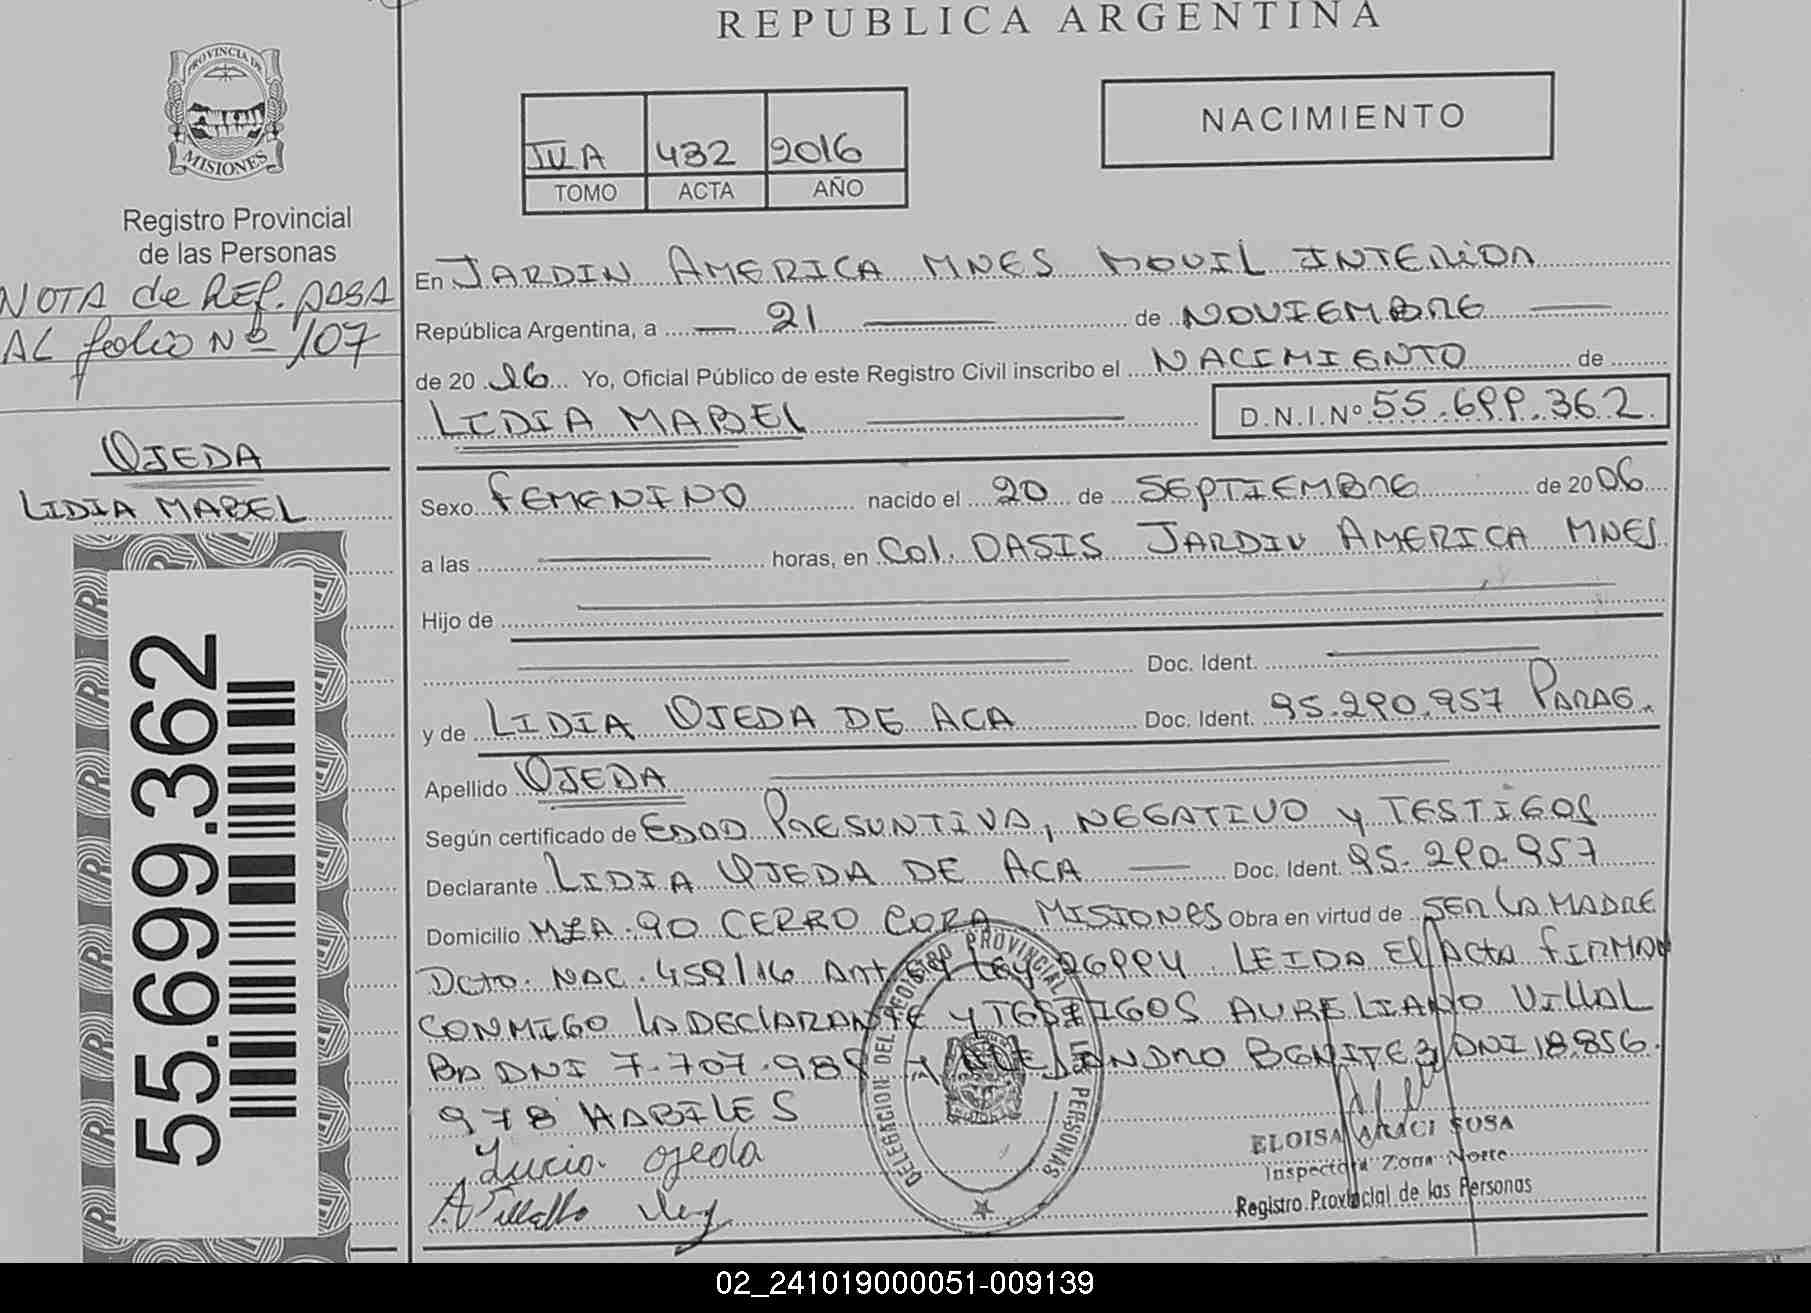 REPUBLICA ARGENTINA
PROVINCIA DE
MISIONES
Registro Provincial
de las Personas
NOTA de REF. PASA
AL folio Nº 107
OJEDA
LIDIA MABEL
55.699.362
432 2016
TOMO ACTA AÑO
NACIMIENTO
En JARDIN AMERICA MNES MOVIL INTERIOR
República Argentina, a 21 de NOVIEMBRE
de 2016 Yo, Oficial Público de este Registro Civil inscribo el NACIMIENTO de
LIDIA MABEL D.N.I.Nº 55.699.362.
Sexo FEMENINO nacido el 20 de SEPTIEMBRE de 2006
a las horas, en Col. OASIS JARDIN AMERICA MNES
Hijo de
Doc. Ident.
y de LIDIA OJEDA DE ACA Doc. Ident. 95.290.957 PARAG.
Apellido OJEDA
Según certificado de EDAD PRESUNTIVA, NEGATIVO y TESTIGOS
Declarante LIDIA OJEDA DE ACA Doc. Ident. 95.290.957
Domicilio MZA. 90 CERRO CORA MISIONES Obra en virtud de SER LA MADRE
Dcto. NAC. 459/16 Ant Ley 26994. LEIDA El Acta FIRMAN
CONMIGO LA DECLARANTE y TESTIGOS AURELIANO VILLAL
BA DNI 7.707.98 BENITEZ DNI 18.856.
978 HABILES
Ojeda
DELEGACION DEL REGISTRO PROVINCIAL DE LAS PERSONAS
ELOISA ARACI SOSA
Inspectora Zona Norte
Registro Provincial de las Personas
02_241019000051-009139